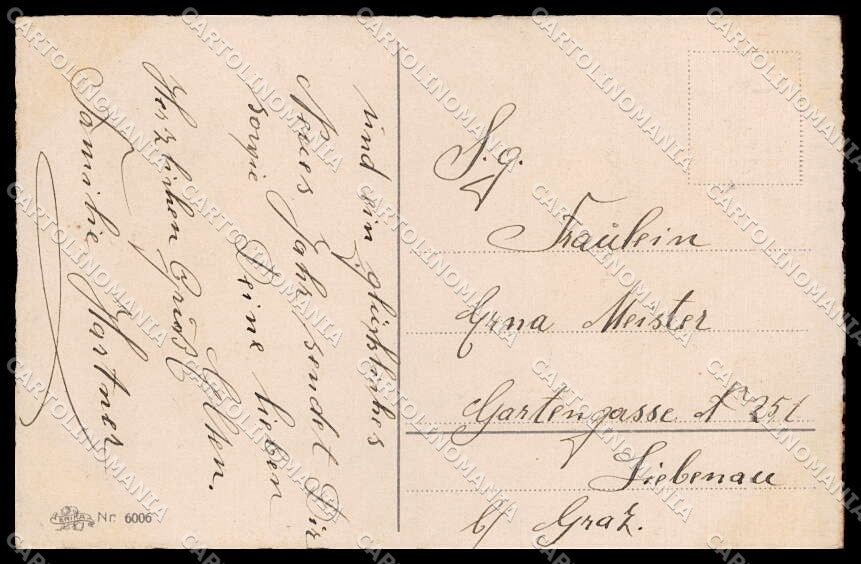 und ein glückliches
Neues Jahr sendet Dir
sowie Deine lieben
Eltern.
Herzlichen Gruß
Familie Hartner
S. g.
Fräulein
Erna Meister
Gartengasse Nr 251
Liebenau
b/ Graz.
ERIKA
Nr. 6006
CARTOLINOMANIA